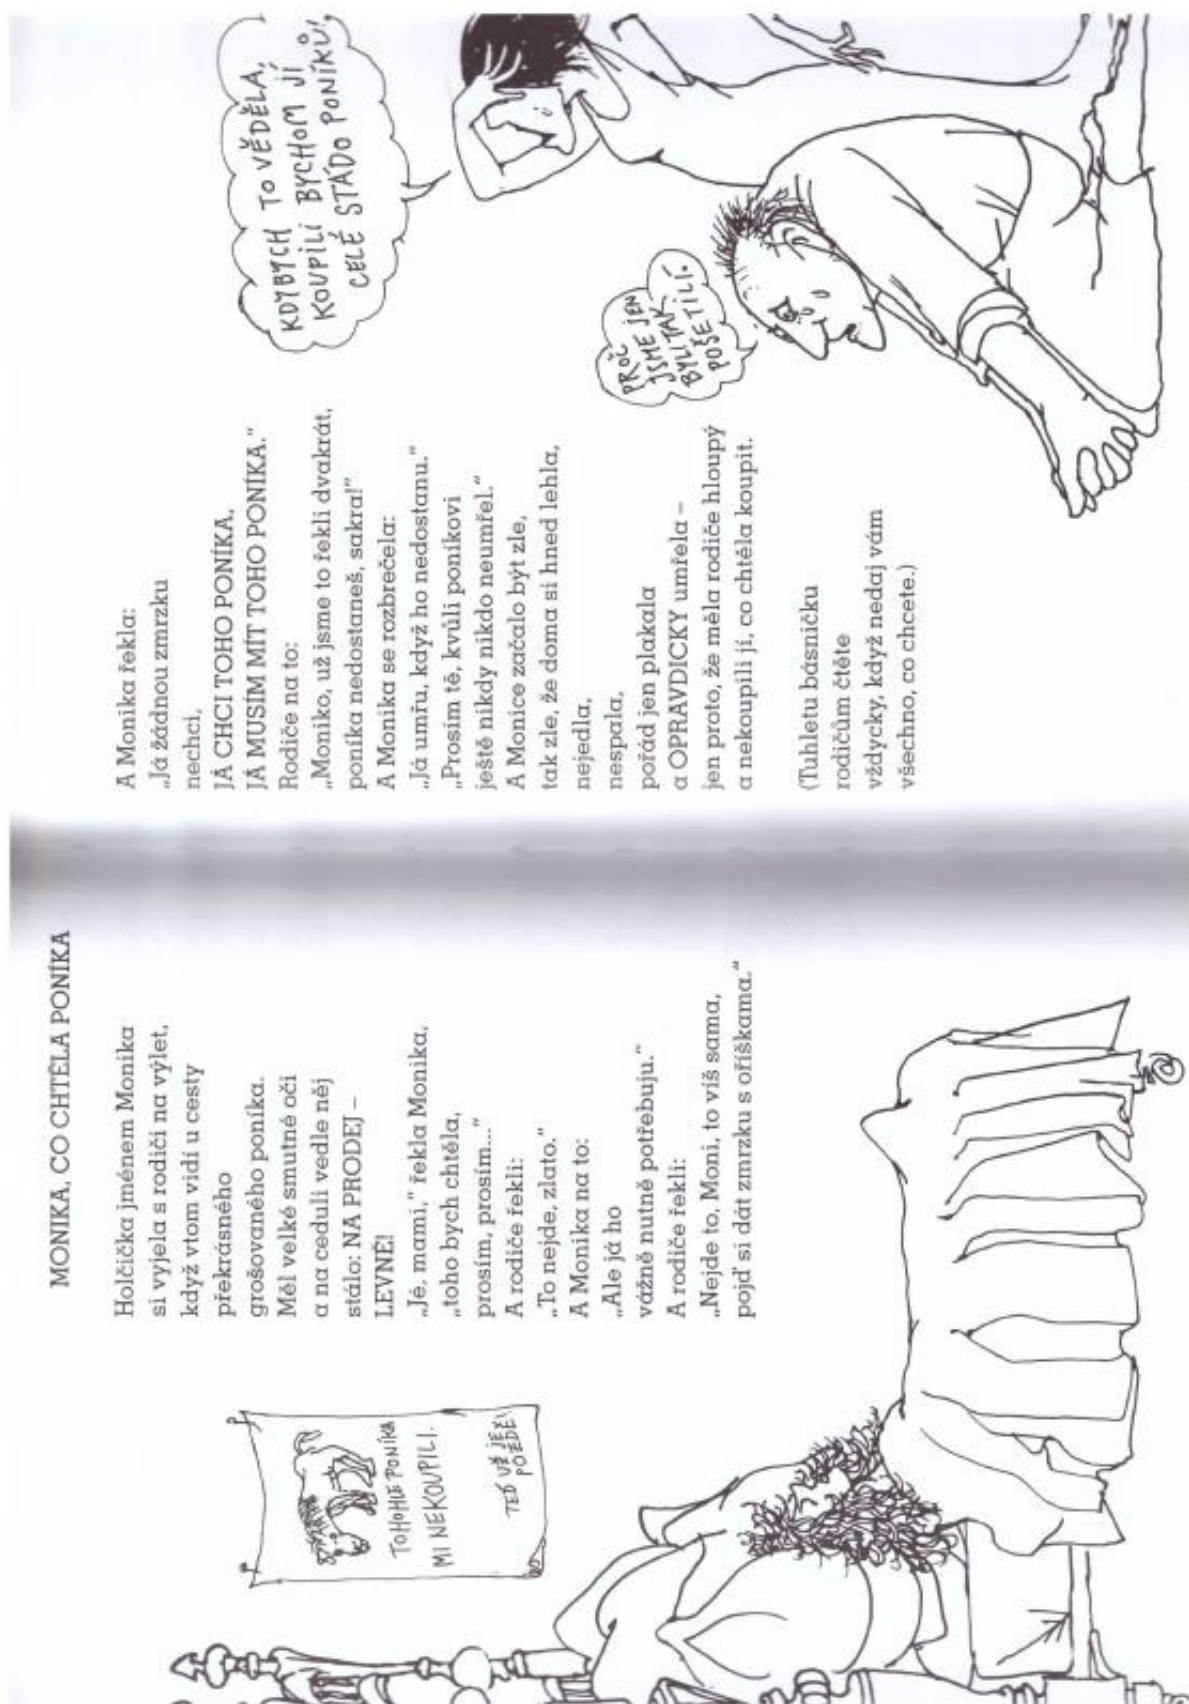 MONIKA, CO CHTĚLA PONÍKA
Holčička jménem Monika
si vyjela s rodiči na výlet,
když vtom vidí u cesty
překrásného
grošovaného poníka.
Měl velké smutné oči
a na ceduli vedle něj
stálo: NA PRODEJ –
LEVNĚ!
„Jé, mami,“ řekla Monika,
„toho bych chtěla,
prosím, prosím...“
A rodiče řekli:
„To nejde, zlato.“
A Monika na to:
„Ale já ho
vážně nutně potřebuju.“
A rodiče řekli:
„Nejde to, Moni, to víš sama,
pojď si dát zmrzku s oříškama.“
TOHOHLE PONÍKA
MI NEKOUPILI.
TEĎ UŽ JE
POZDĚ!
A Monika řekla:
„Já žádnou zmrzku
nechci,
JÁ CHCI TOHO PONÍKA,
JÁ MUSÍM MÍT TOHO PONÍKA.“
Rodiče na to:
„Moniko, už jsme to řekli dvakrát,
poníka nedostaneš, sakra!“
A Monika se rozbrečela:
„Já umřu, když ho nedostanu.“
„Prosím tě, kvůli poníkovi
ještě nikdy nikdo neumřel.“
A Monice začalo být zle,
tak zle, že doma si hned lehla,
nejedla,
nespala,
pořád jen plakala
a OPRAVDICKY umřela –
jen proto, že měla rodiče hloupý
a nekoupili jí, co chtěla koupit.
(Tuhletu básničku
rodičům čtěte
vždycky, když nedaj vám
všechno, co chcete.)
KDYBYCH TO VĚDĚLA,
KOUPILI BYCHOM JÍ
CELÉ STÁDO PONÍKŮ!
PROČ
JSME JEN
BYLI TAK
POŠETILÍ.